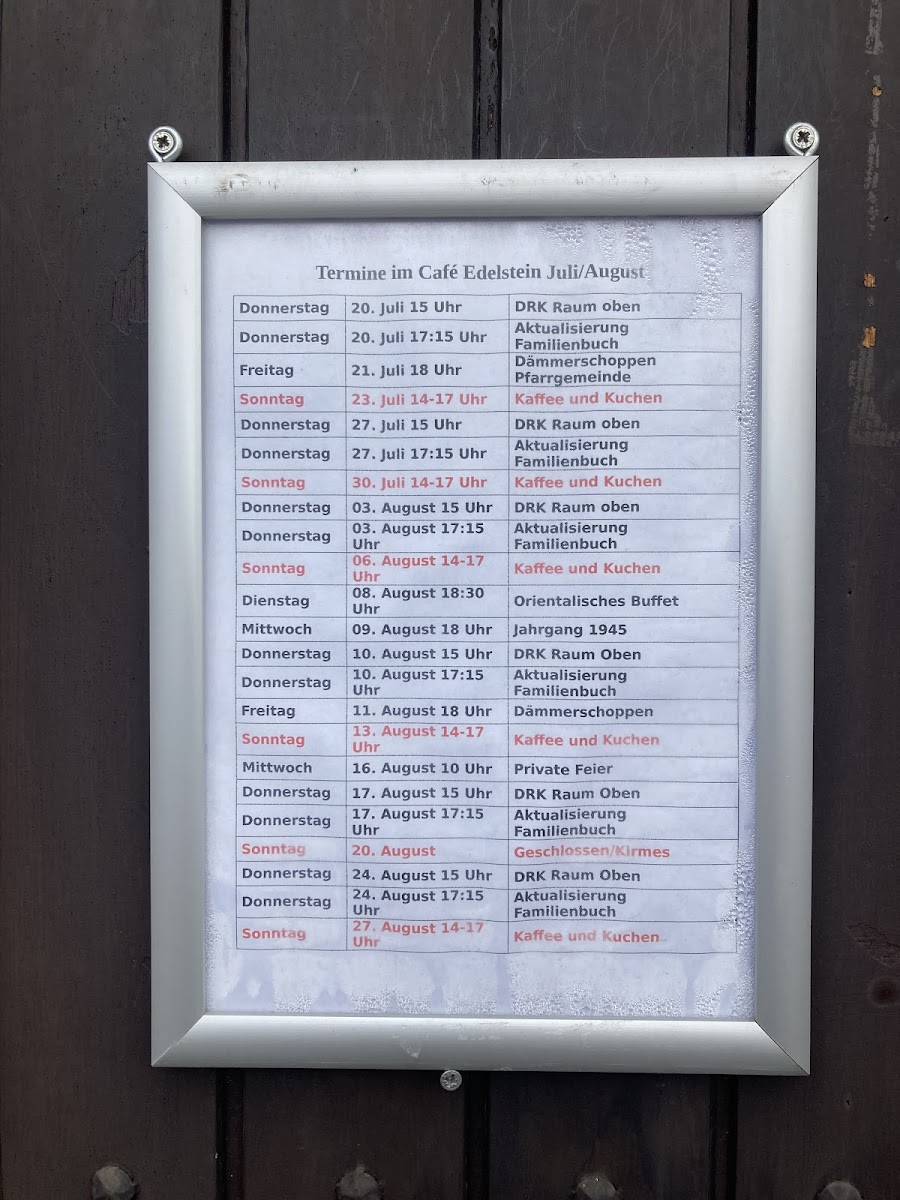 Termine im Café Edelstein Juli/August
Donnerstag 20. Juli 15 Uhr DRK Raum oben
Donnerstag 20. Juli 17:15 Uhr Aktualisierung
Familienbuch
Freitag 21. Juli 18 Uhr Dämmerschoppen
Pfarrgemeinde
Sonntag 23. Juli 14-17 Uhr Kaffee und Kuchen
Donnerstag 27. Juli 15 Uhr DRK Raum oben
Donnerstag 27. Juli 17:15 Uhr Aktualisierung
Familienbuch
Sonntag 30. Juli 14-17 Uhr Kaffee und Kuchen
Donnerstag 03. August 15 Uhr DRK Raum oben
Donnerstag 03. August 17:15 Aktualisierung
Uhr Familienbuch
Sonntag 06. August 14-17 Kaffee und Kuchen
Uhr
Dienstag 08. August 18:30 Orientalisches Buffet
Uhr
Mittwoch 09. August 18 Uhr Jahrgang 1945
Donnerstag 10. August 15 Uhr DRK Raum Oben
Donnerstag 10. August 17:15 Aktualisierung
Uhr Familienbuch
Freitag 11. August 18 Uhr Dämmerschoppen
Sonntag 13. August 14-17 Kaffee und Kuchen
Uhr
Mittwoch 16. August 10 Uhr Private Feier
Donnerstag 17. August 15 Uhr DRK Raum Oben
Donnerstag 17. August 17:15 Aktualisierung
Uhr Familienbuch
Sonntag 20. August Geschlossen/Kirmes
Donnerstag 24. August 15 Uhr DRK Raum Oben
Donnerstag 24. August 17:15 Aktualisierung
Uhr Familienbuch
Sonntag 27. August 14-17 Kaffee und Kuchen
Uhr